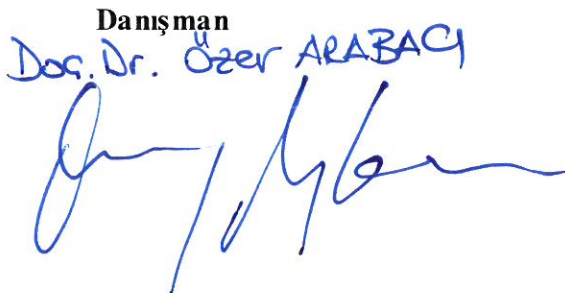 Danışman
Doç. Dr. Özer ARABACI